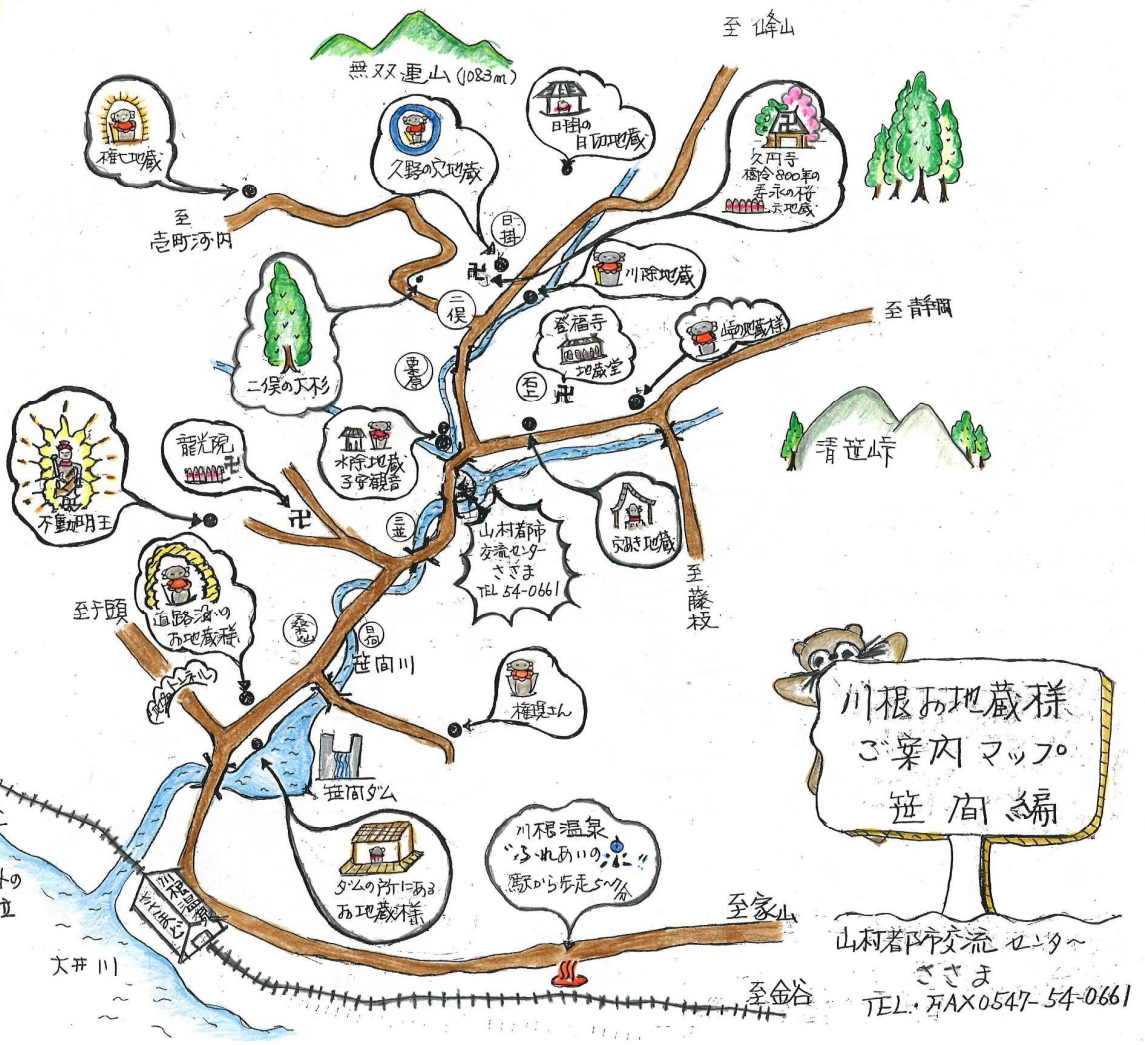 至 峰山
無双連山(1083m)
権七地蔵
久路の穴地蔵
日掛の
日切地蔵
久円寺
樹令800年の
寿永の桜
六地蔵
至
壱町河内
日掛
卍
川除地蔵
二俣
二俣の大杉
栗原
登福寺
地蔵堂
石上
卍
峠の地蔵様
至 静岡
清笹峠
不動明王
龍光院
卍
卍
水除地蔵
子安観音
三並
山村都市
交流センター
ささま
TEL 54-0661
穴あき地蔵
至
藤枝
至千頭
道路沿いの
お地蔵様
トンネル
笹間川
権現さん
笹間ダム
ダムの所にある
お地蔵様
川根温泉
"ふれあいの泉"
駅から歩走5~7分
至家山
至金谷
大井川
川根温泉
ささまど
川根お地蔵様
ご案内マップ
笹間編
山村都市交流センター
ささま
TEL・FAX0547-54-0661